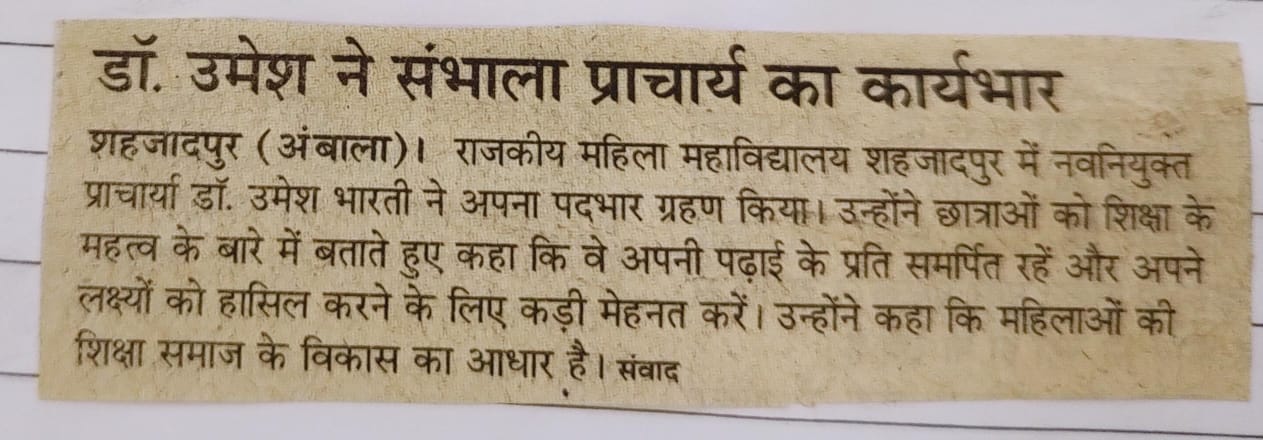 डॉ. उमेश ने संभाला प्राचार्य का कार्यभार
शहजादपुर (अंबाला)। राजकीय महिला महाविद्यालय शहजादपुर में नवनियुक्त
प्राचार्या डॉ. उमेश भारती ने अपना पदभार ग्रहण किया। उन्होंने छात्राओं को शिक्षा के
महत्व के बारे में बताते हुए कहा कि वे अपनी पढ़ाई के प्रति समर्पित रहें और अपने
लक्ष्यों को हासिल करने के लिए कड़ी मेहनत करें। उन्होंने कहा कि महिलाओं की
शिक्षा समाज के विकास का आधार है। संवाद